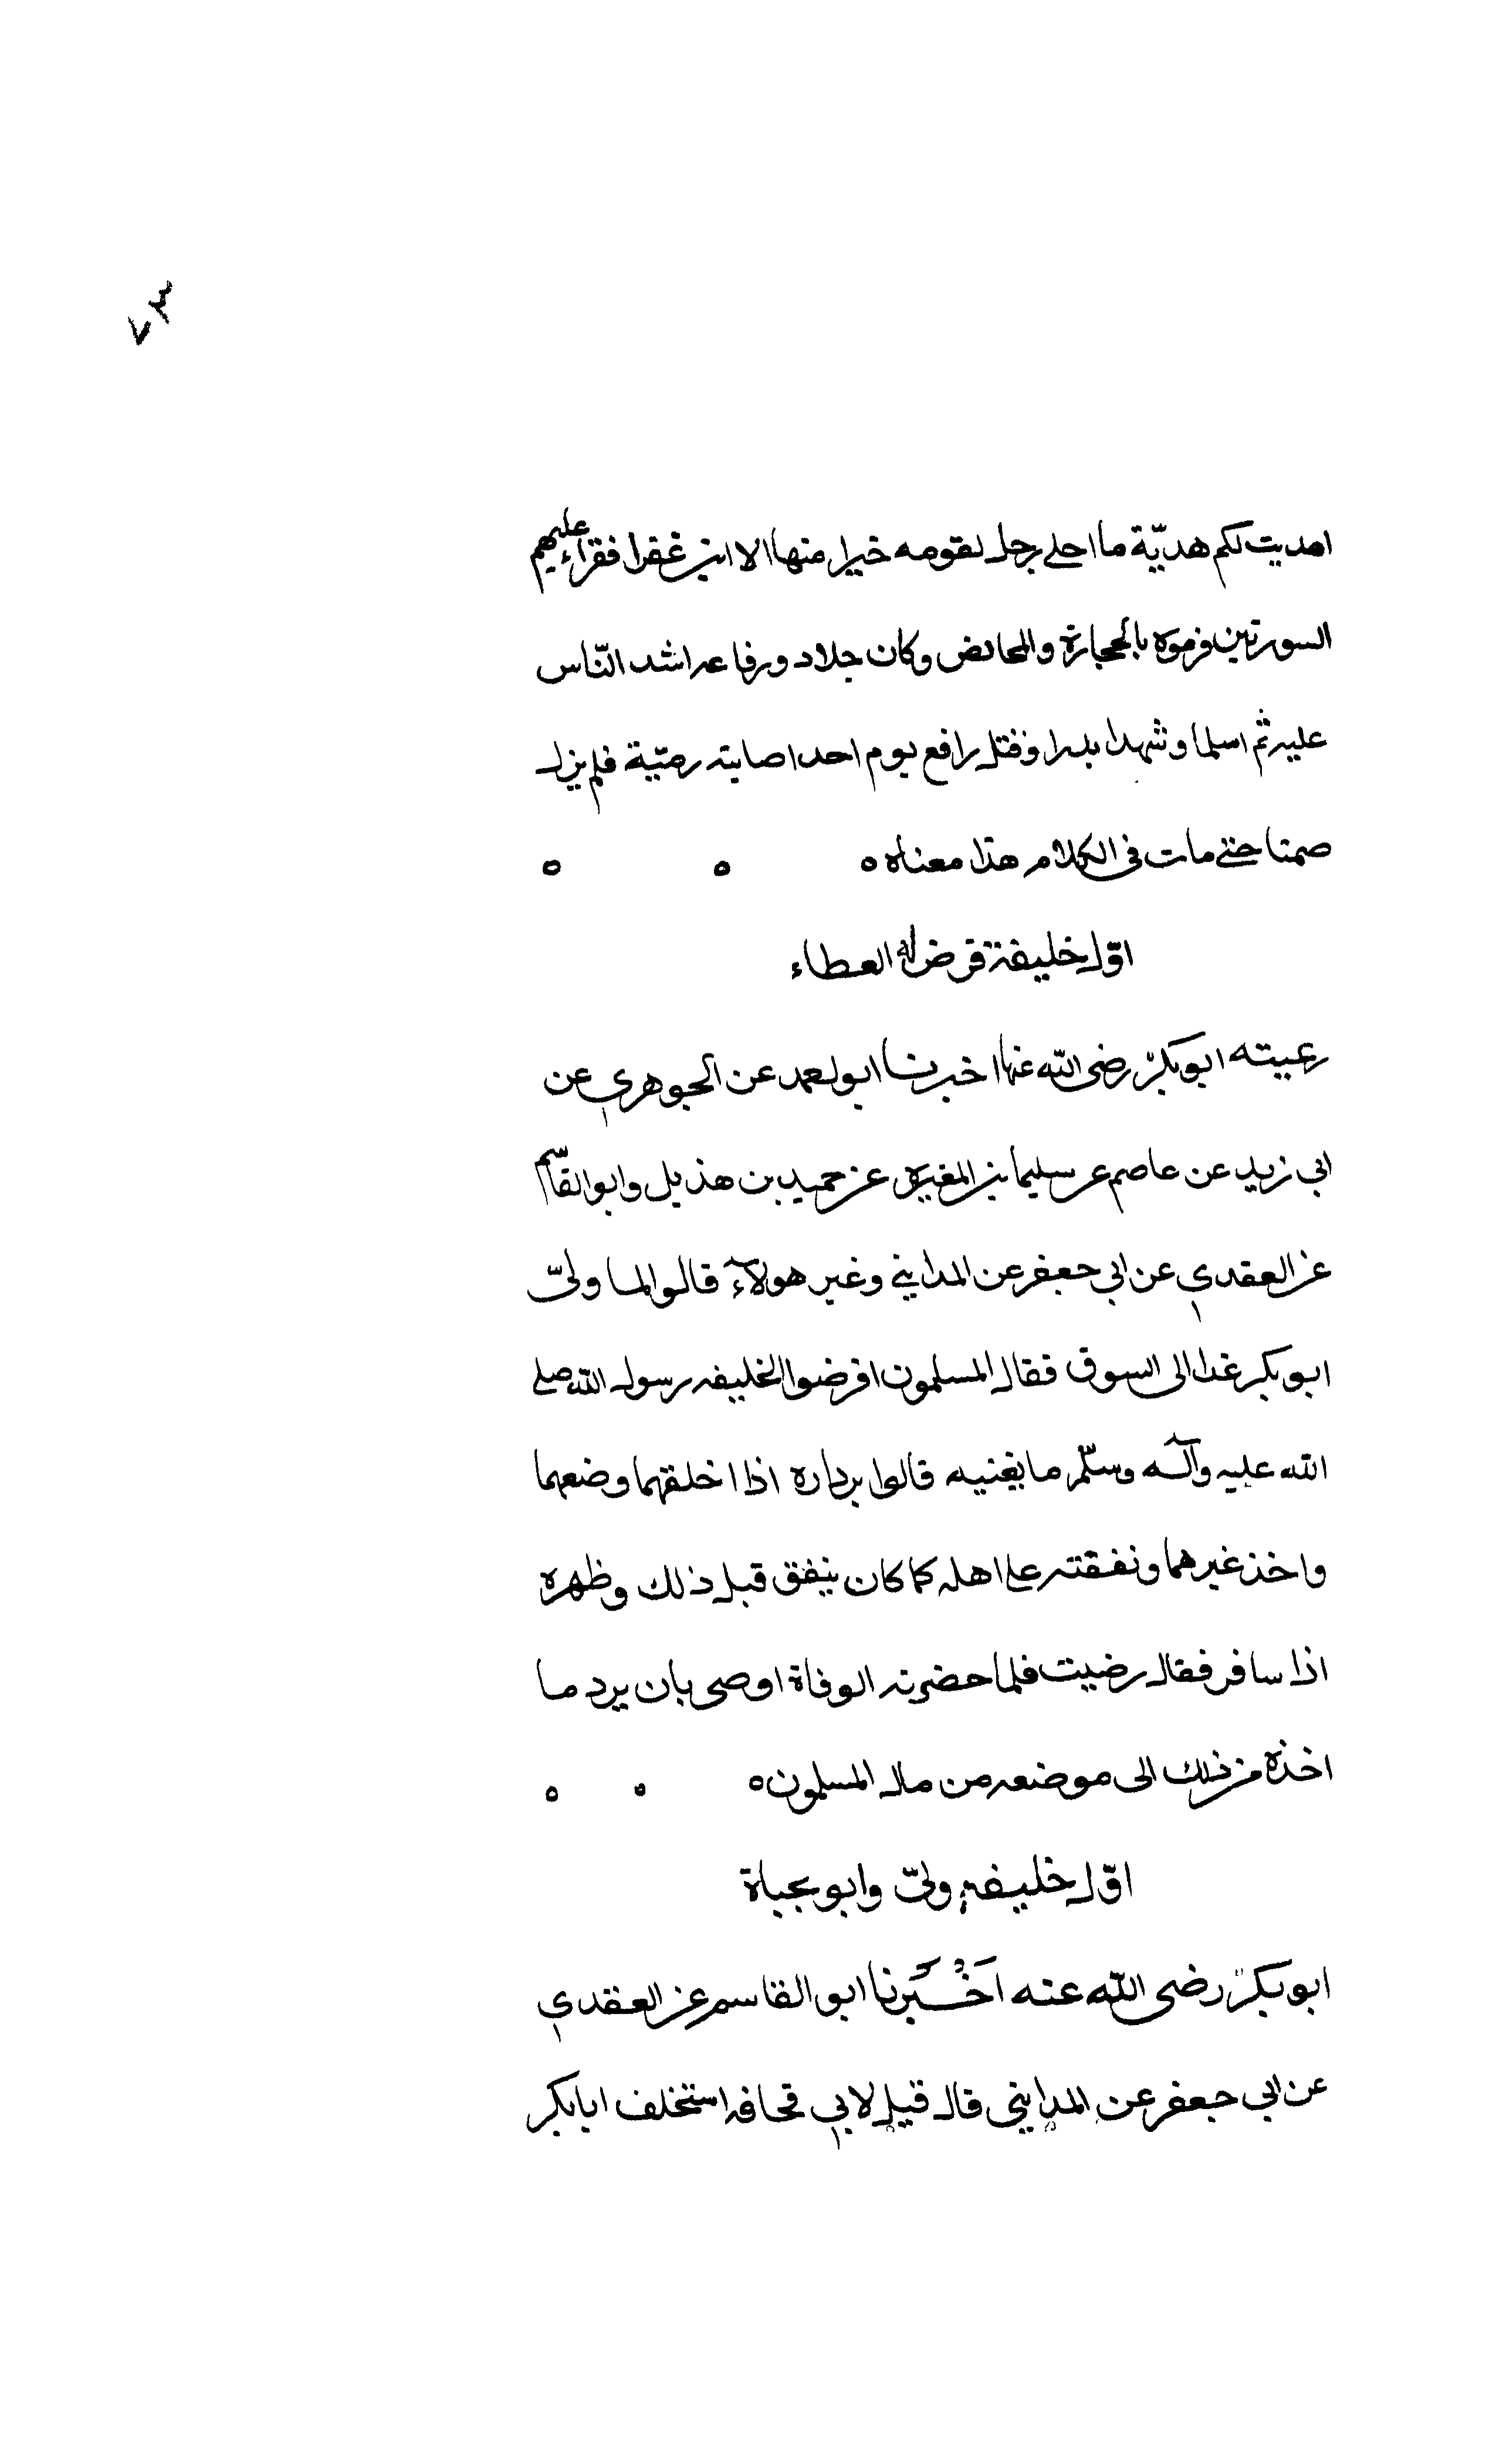 ٧٣
اهديت لكم هديّة ما احلى رجل لقومه خيرا منها الا ابن غفرا فقرأ عليهم
السورتين فرموه بالحجارة والمحائض وكان جلاد ورفاعه اشد النّاس
عليه ثم اسلما وشهدا بدرا وقتل رافع يوم احد اصابته رميّة فلم يزل
صمتا حتى مات في الكلام هذا معناه ه ه ه
اوّل خليفة فرض له العطاء
رعيته ابو بكر رضى اللّه عنها اخبرنا ابو لعمد عن الجوهري عن
ابي زيد عن عاصم عن سليمان بن المغيرة عن حميد بن هذيل وابو القاسم
عن العقدي عن ابي جعفر عن المدايني وغير هولآء قالوا لما ولىّ
ابو بكر غدا الى السوق فقال المسلمون افرضوا لخليفه رسول اللّه صلى
اللّه عليه وآله وسلّم ما يغنيه قالوا برداره اذا اخلقهما وضعهما
واخذ غيرهما ونفقته على اهله كما كان ينفق قبل ذلك وظهره
اذا سافر فقال رضيت فلما حضرته الوفاة اوصى بان يرد ما
اخذه من ذلك الى موضعه من مال المسلمون ه ه ه
اوّل خليفه ولىّ وابو بحياة
ابو بكر رضى اللّه عنه اَخْبَرنا ابو القاسم عن العقدي
عن ابي جعفر عن المدايني قال قيل لابي قحافه استخلف ابابكر